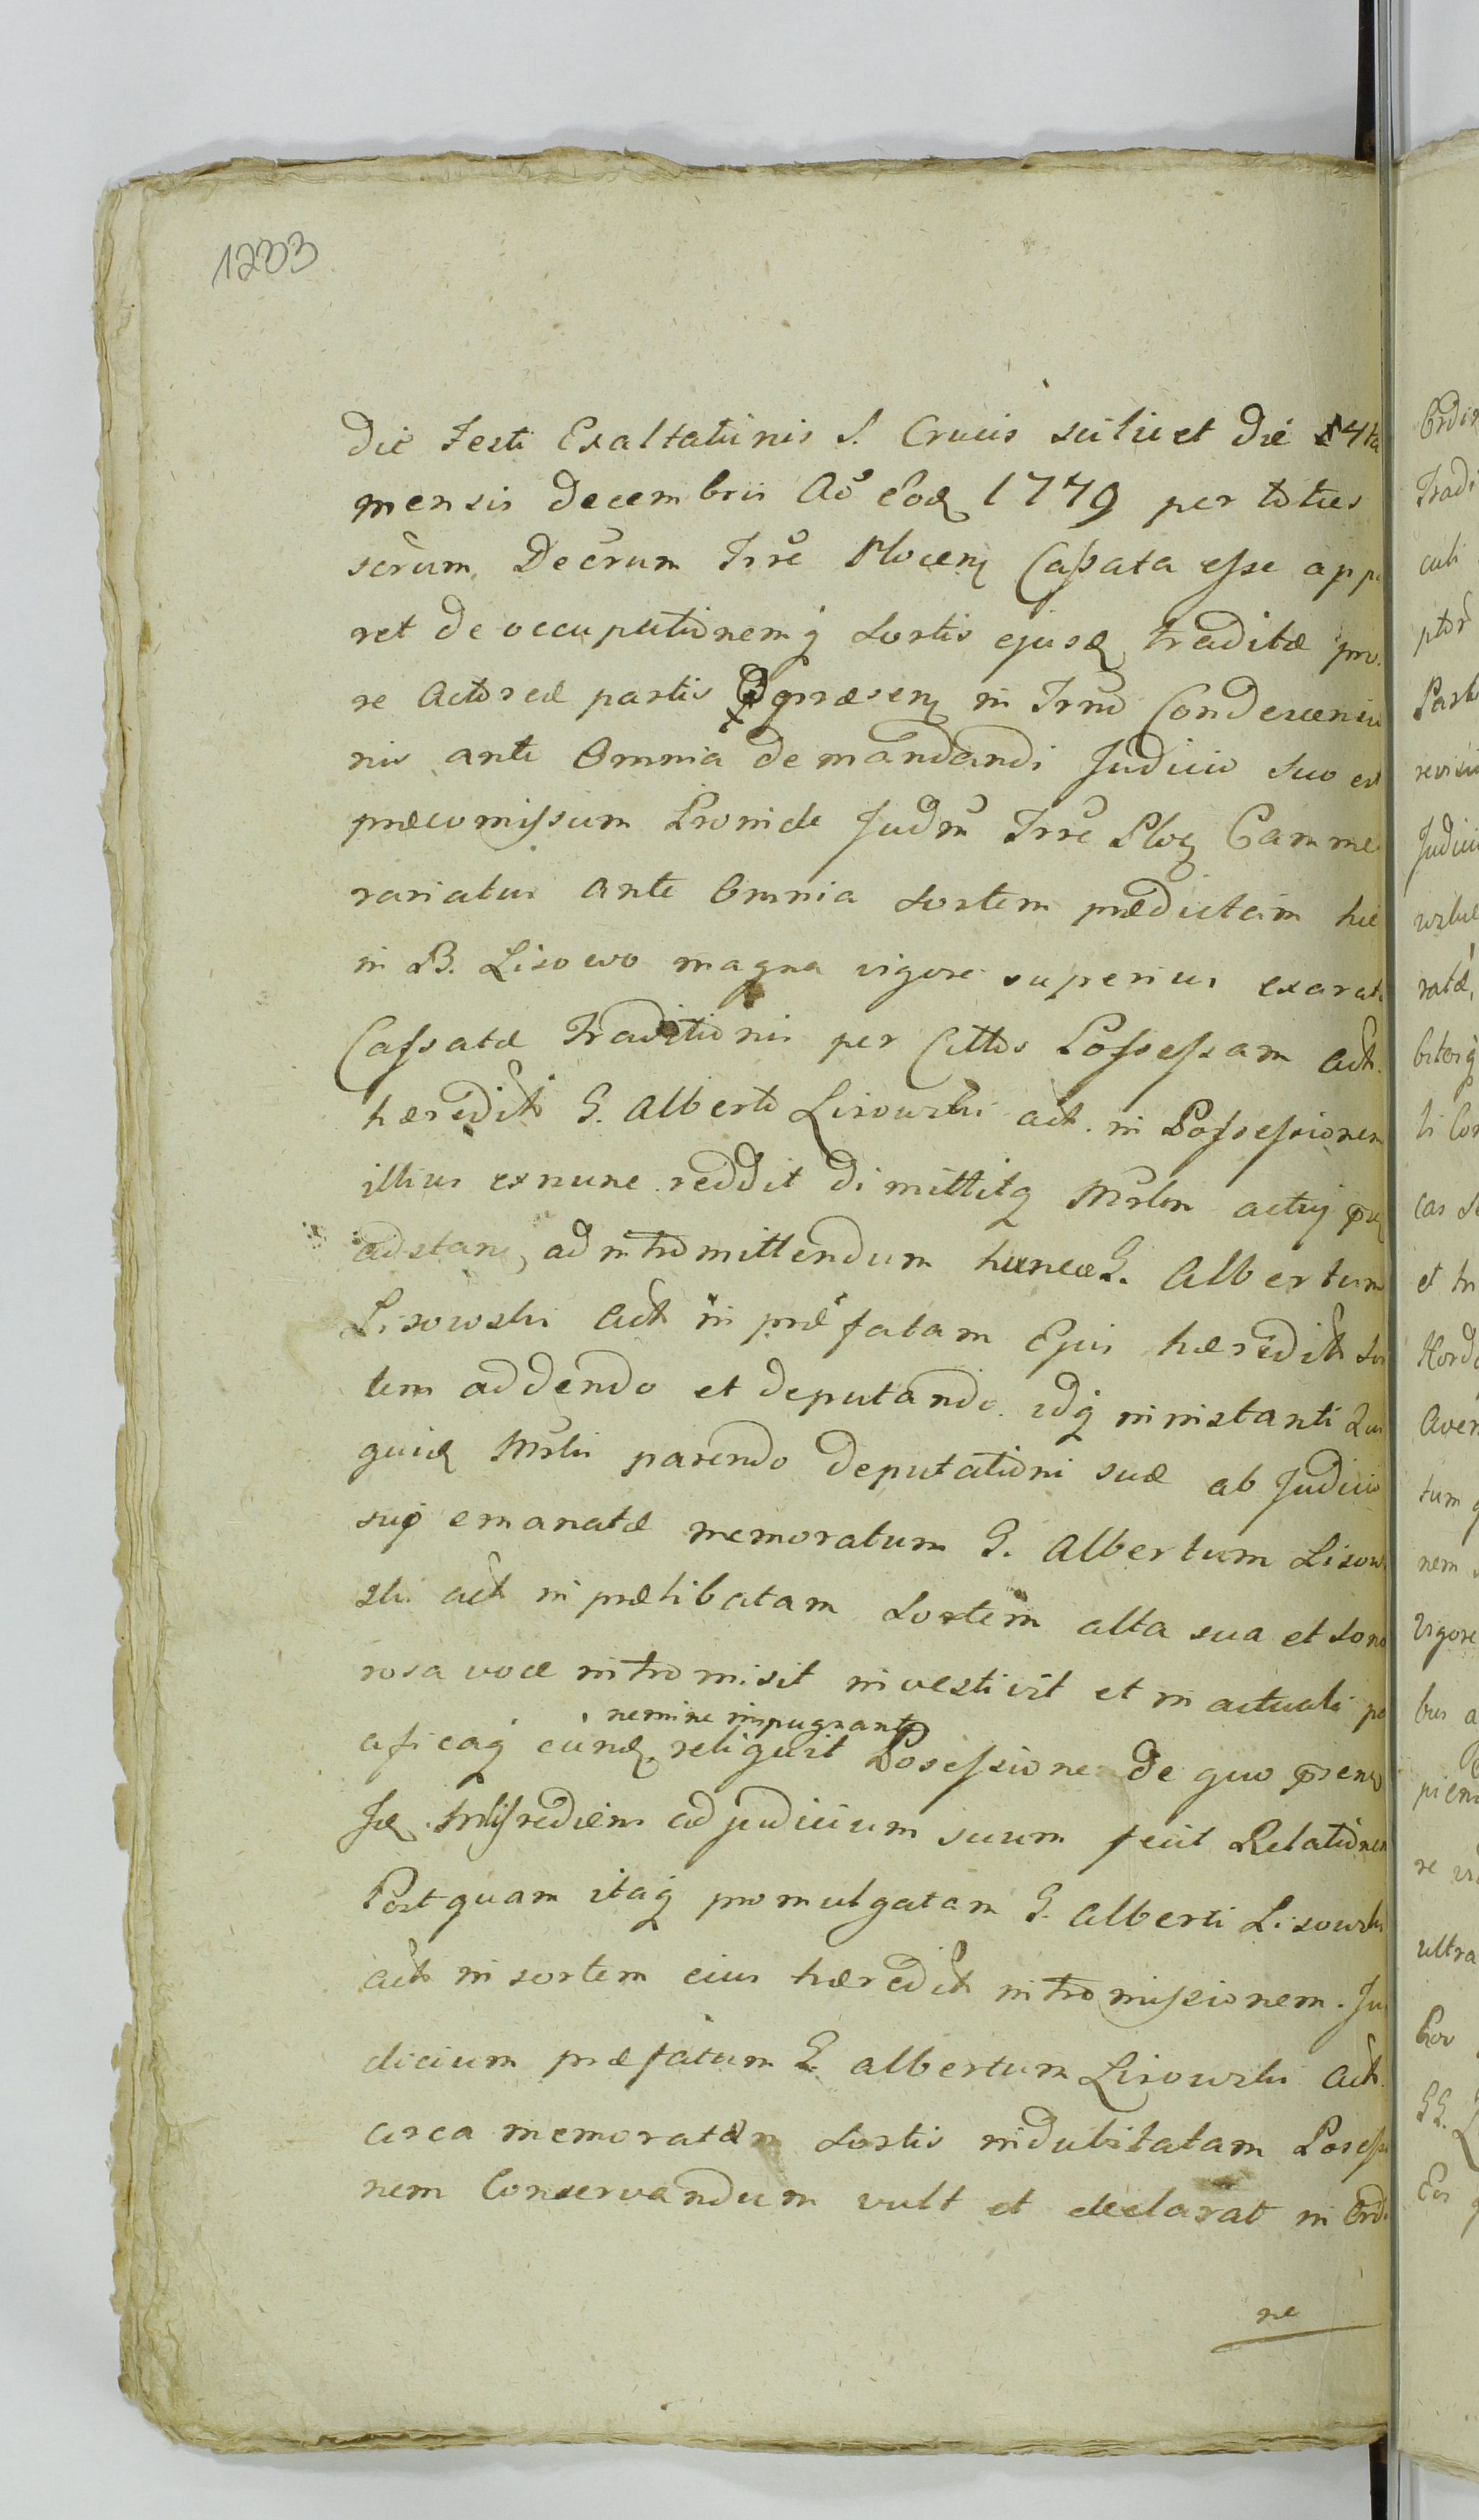 1233
Die Festi Exaltationis S. Crucis scilicet die 14ta
mensis Decembris Ao eodq 1779 per toties
scrum Decrum Trre Plocenq Cassata esse appa
ret de occupationemq sortis ejusdq traditæ pro
re Actoreæ partis præsenq in Trno Condescensio
nis ante Omnia demandandi Judicio suo est
præcomissum Proinde Judm Trre Plocq Camme
rariatus ante Omnia sortem prædictam hic
in B. Lisowo magna vigore superius exarata
Cassatæ Traditionis per Cittos Possessam act.
hæredith G. Alberto Lisowski act. in Possessionem
illius exnunc reddit dimittitq Mrlm actuj prq
adstans, ad intromittendum hunce G. Albertum
Lisowski Act in præfatam Ejus hæredith sor
tem addendo et deputando. idq ininstanti Qui
quidq Mrlis parendo deputationi suæ ab Judicio
suo emanatæ memoratum G. Albertum Lisow
ski act in prælibatam sortem alta sua et sono
rosa voce intromisit investivit et in actuali pa
nemine impugnante
cificaq eundq reliquit Possessione De quo prenq
Idq Mrlis rediens ad judicium suum fecit Relationem
Postquam itaq promulgatam G. Alberti Lisowski
act in sortem eius hæredith intromissionem. Ju
dicium præfatum G. Albertum Lisowski Act.
circa memoratam sortis indubitatam Possessio
nem Conservandum vult et declarat in Ordi
ne
Tradi
culi
Judicii
ratæ,
et in
tum
nem
Vigore
bus a
ultra
GG.